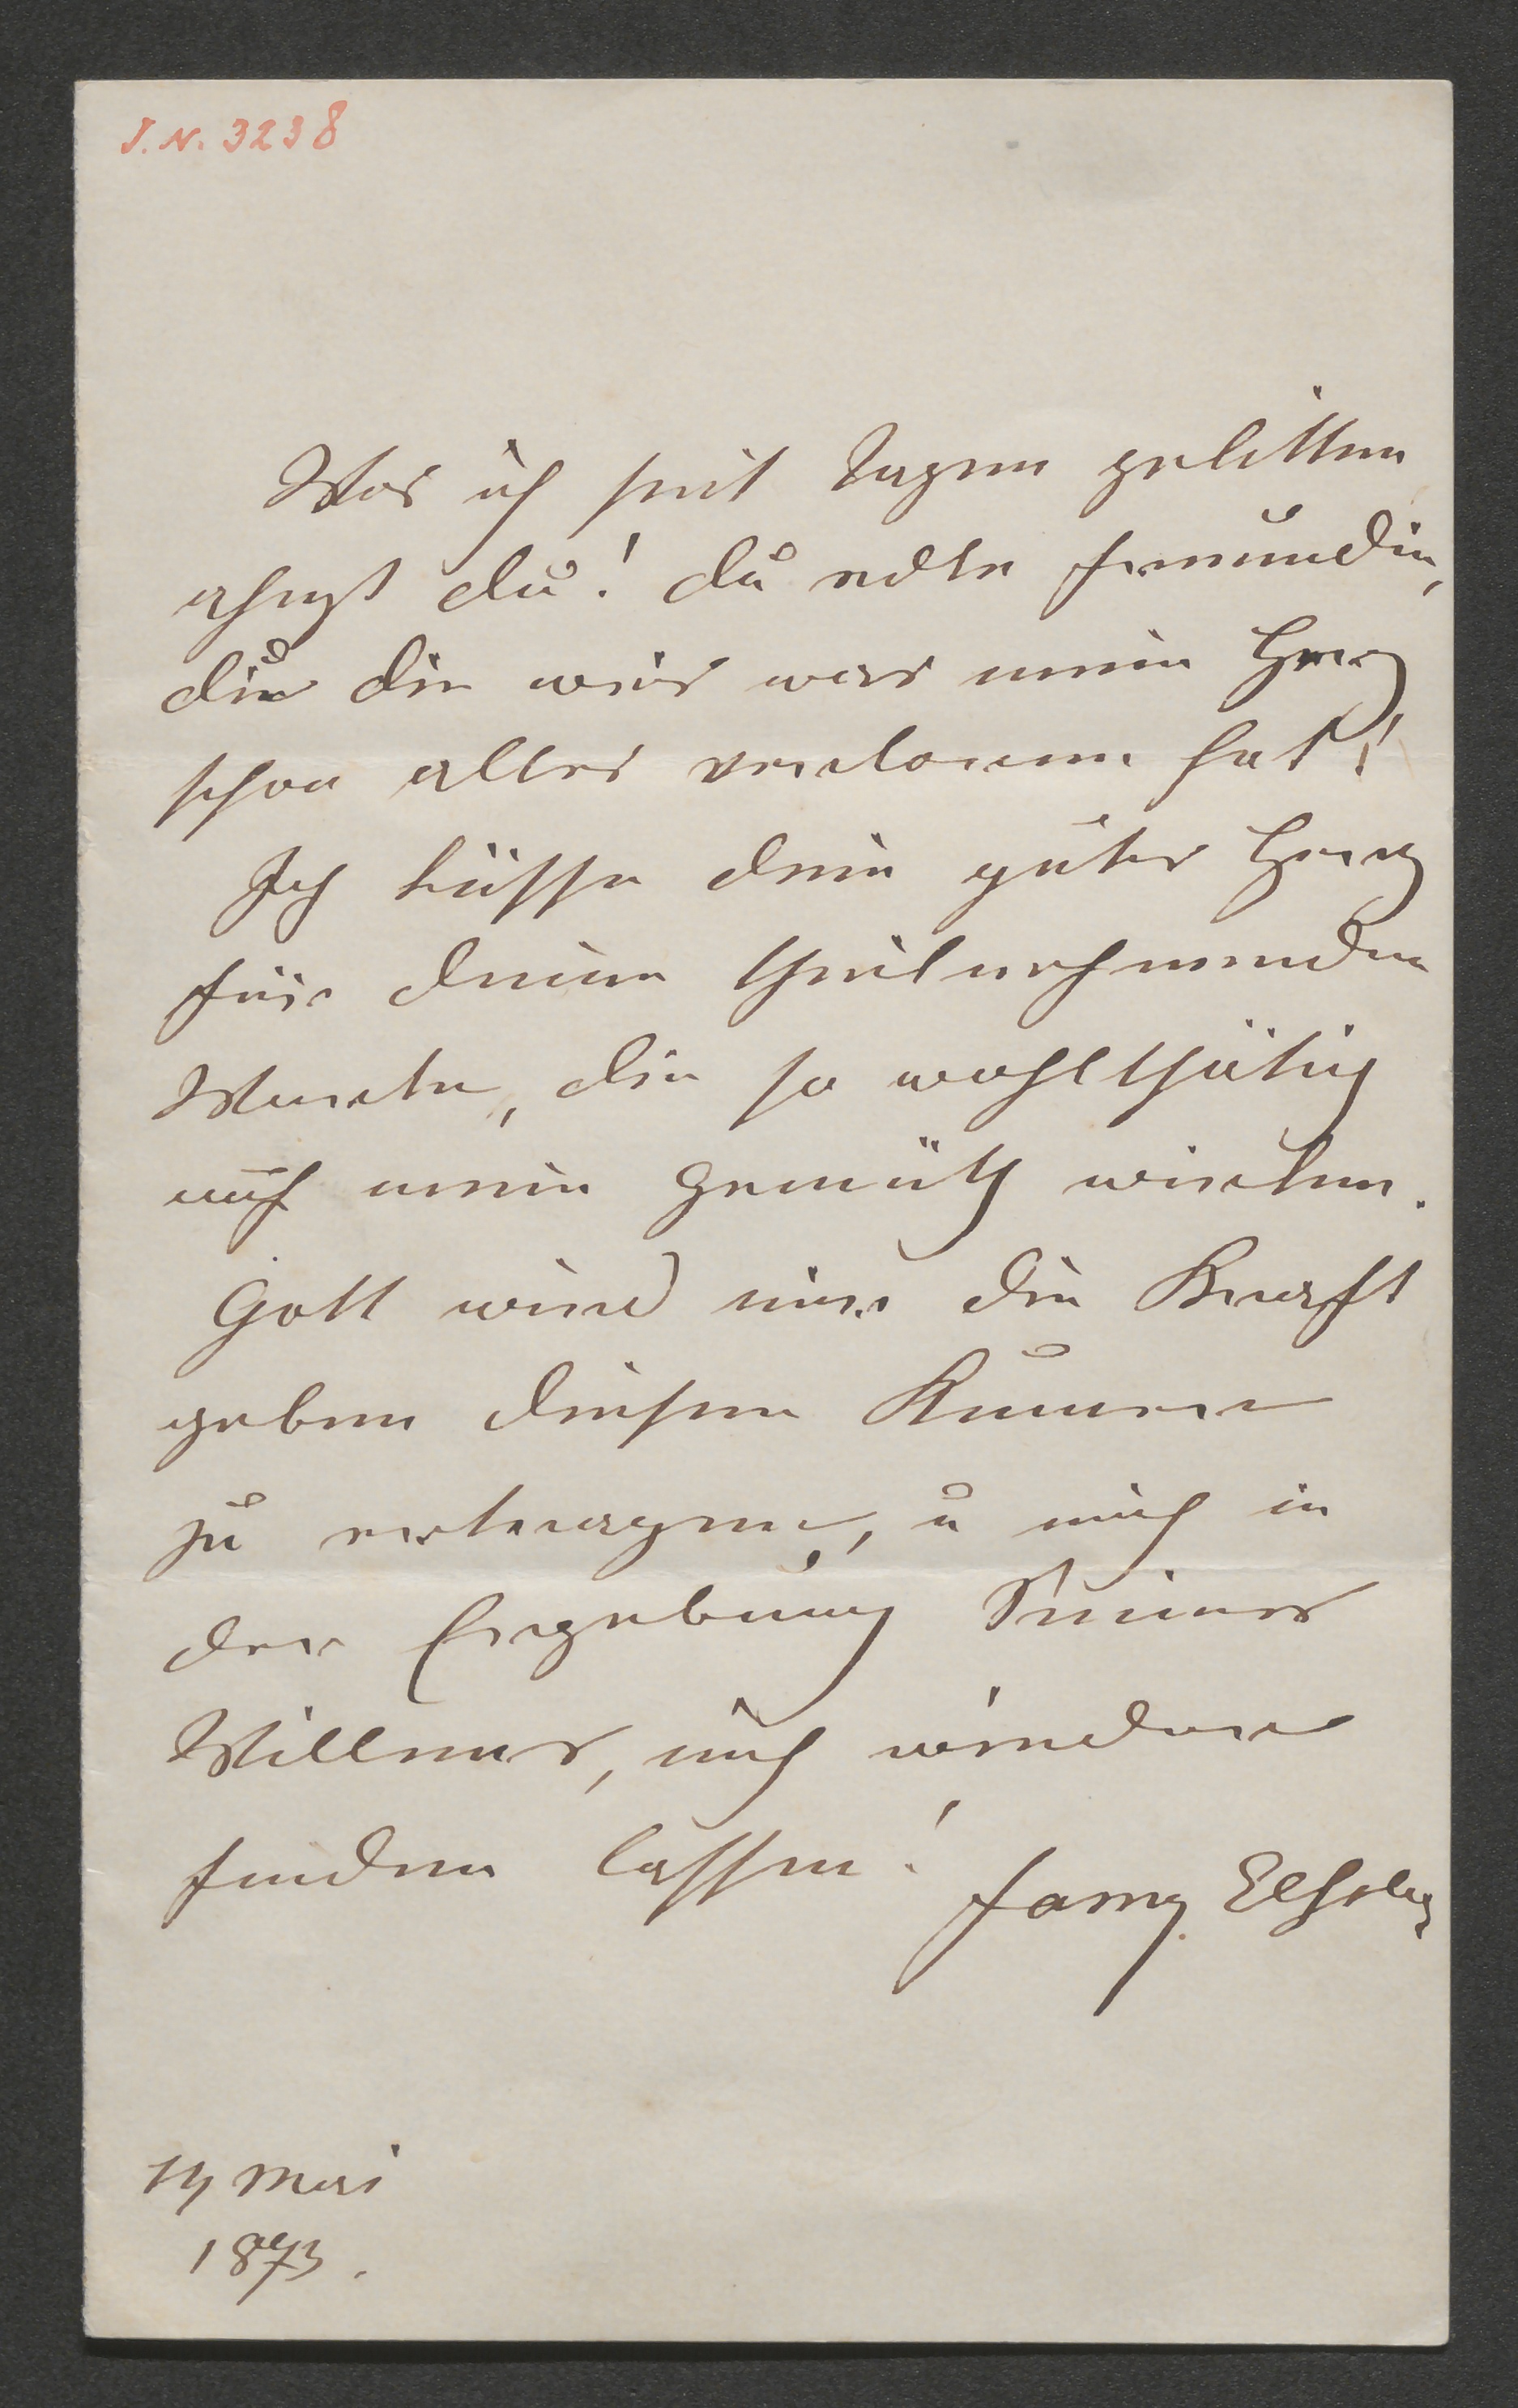 J. N. 3238
Was ich seit Tagen gelitten
ahnst du! du edle Freundin,
du die weis was mein Herz
schon alles verloren hat!
Ich küsse dein gutes Herz
für deine theilnehmenden
Worte, die so wohlthätig
auf mein Gemüth wirken.
Gott wird mir die Kraft
geben diesen Kummer
zu ertragen, u mich in
der Ergebung Seines
Willens, mich wieder
finden lassen!
Fanny Elßler
14 Mai
1873.